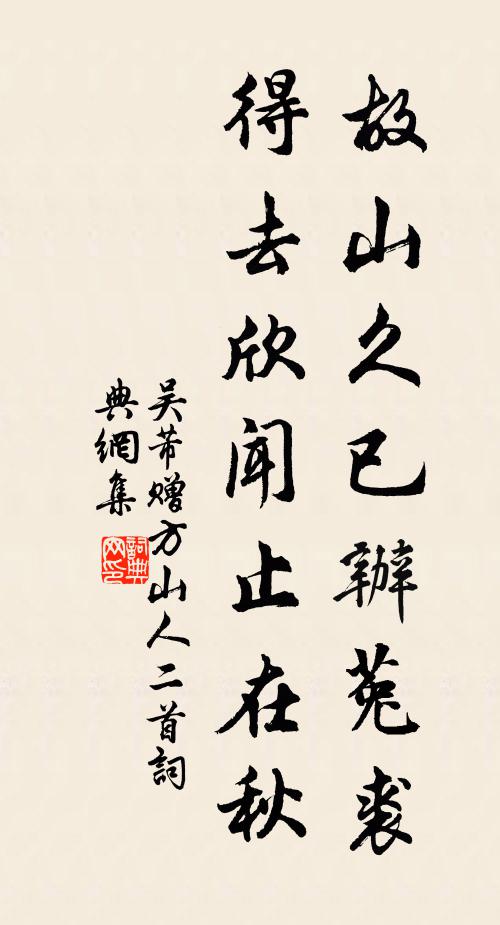 故山久已辦菟裘
得去欣聞止在秋
吴芾赠方山人二首詞
典網集
詞典网印